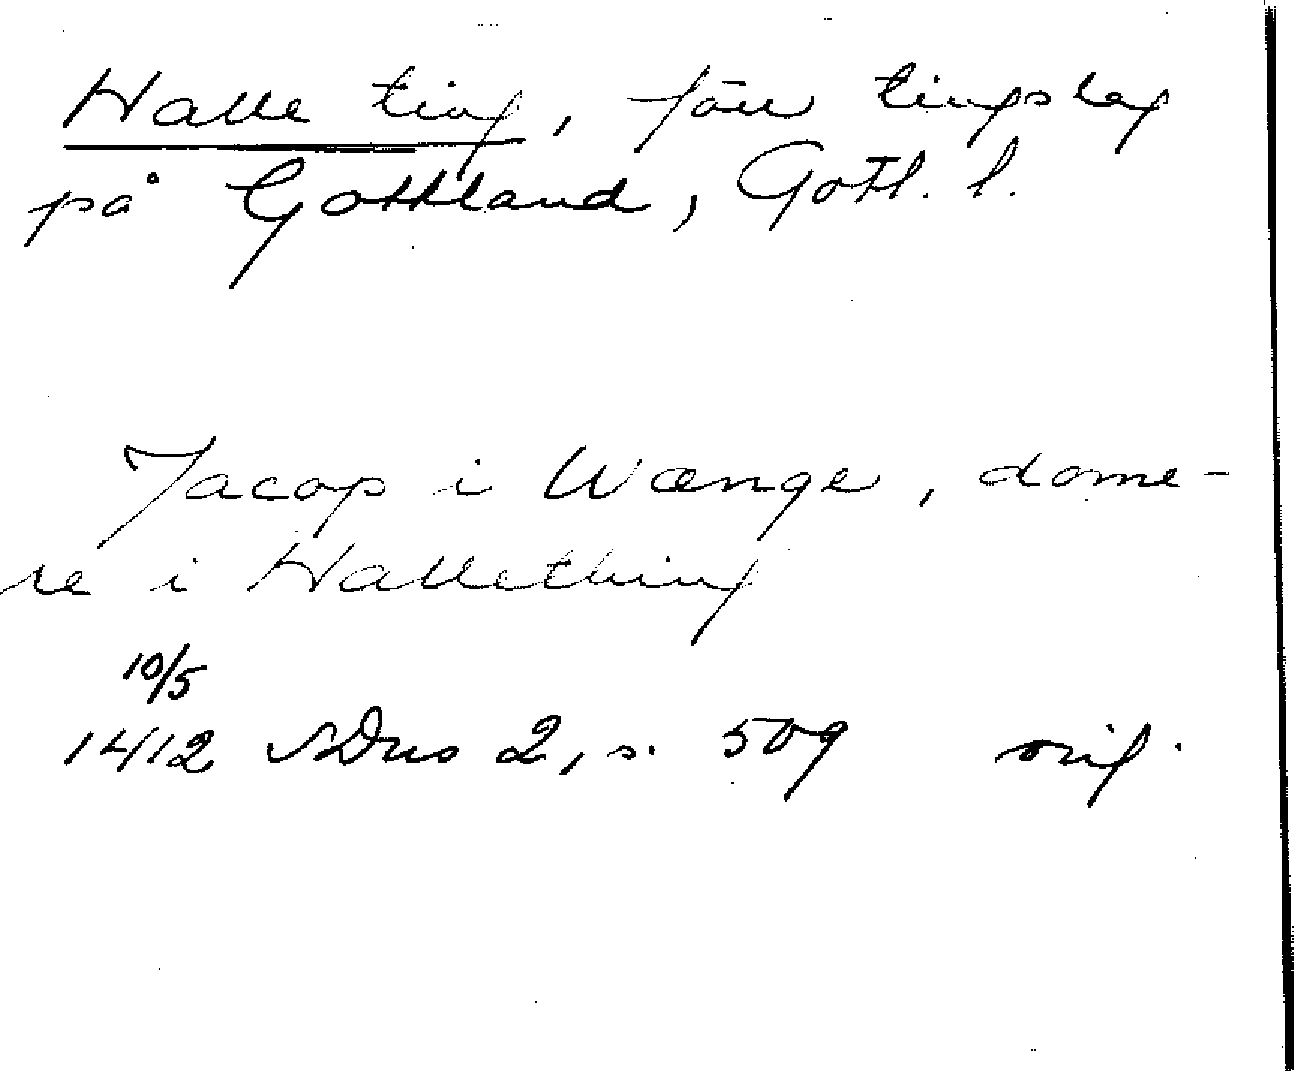 Halle ting, förr tingslag
på Gottland, Gotl. l.
Jacop i Wænge, dome-
re i Hallething
10/5
1412 SDns 2, s. 509 orig.